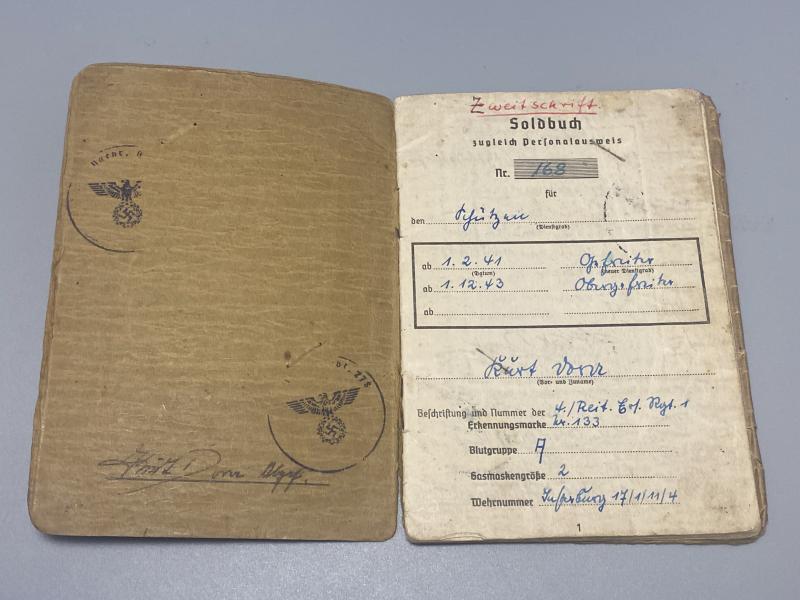 Nachr. A
bt. 278
Kurt Dorn Ogfr.
Zweitschrift.
Soldbuch
zugleich Personalausweis
Nr. 168
für
den Schützen
(Dienstgrad)
ab 1.2.41 Gefreiter
(Datum) (neuer Dienstgrad)
ab 1.12.43 Obergefreiter
ab
Kurt Dorn
(Vor- und Zuname)
Beschriftung und Nummer der 4./Reit. Ers. Rgt. 1
Erkennungsmarke Nr. 133
Blutgruppe A
Gasmaskengröße 2
Wehrnummer Insterburg 17/1/11/4
1